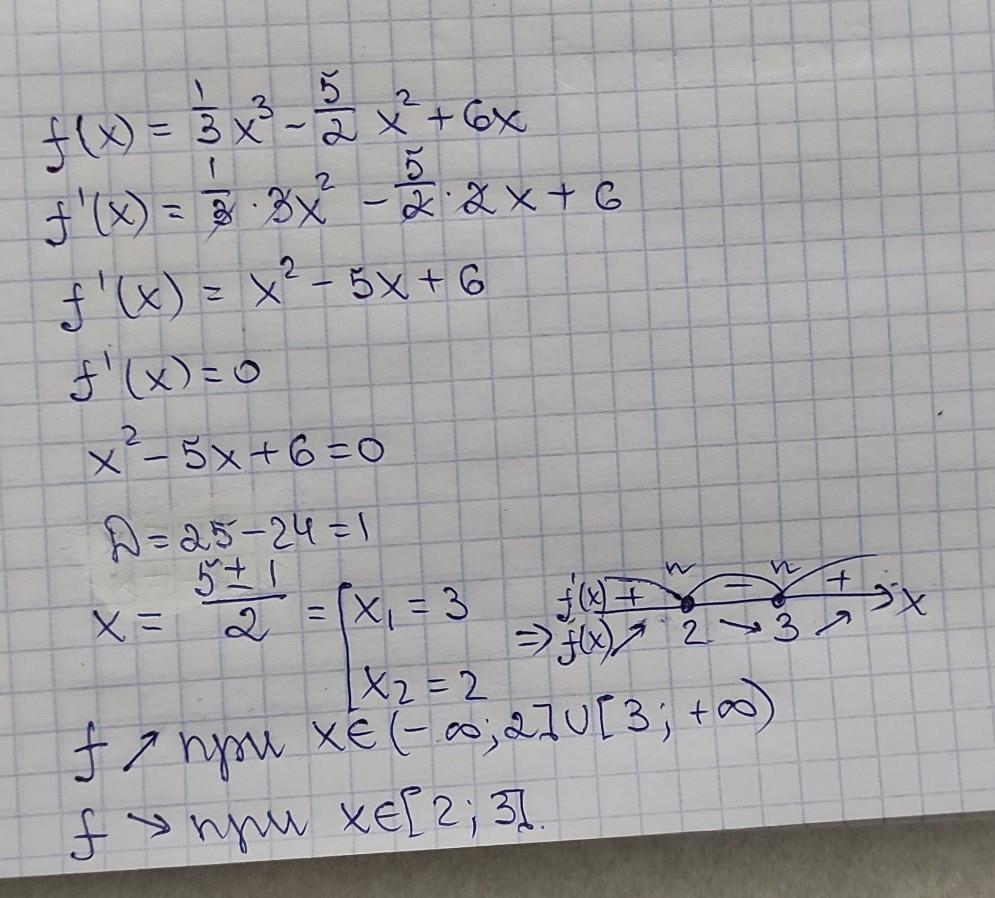 f(x) = 1/3 x³ - 5/2 x² + 6x
f'(x) = 1/3 · 3x² - 5/2 · 2x + 6
f'(x) = x² - 5x + 6
f'(x) = 0
x² - 5x + 6 = 0
D = 25 - 24 = 1
x = (5 ± 1)/2 = [x₁ = 3
x₂ = 2
n n
f'(x) + - + x
=> f(x) ↗ 2 ↘ 3 ↗
f ↗ при x∈(-∞; 2]∪[3; +∞)
f ↘ при x∈[2; 3].